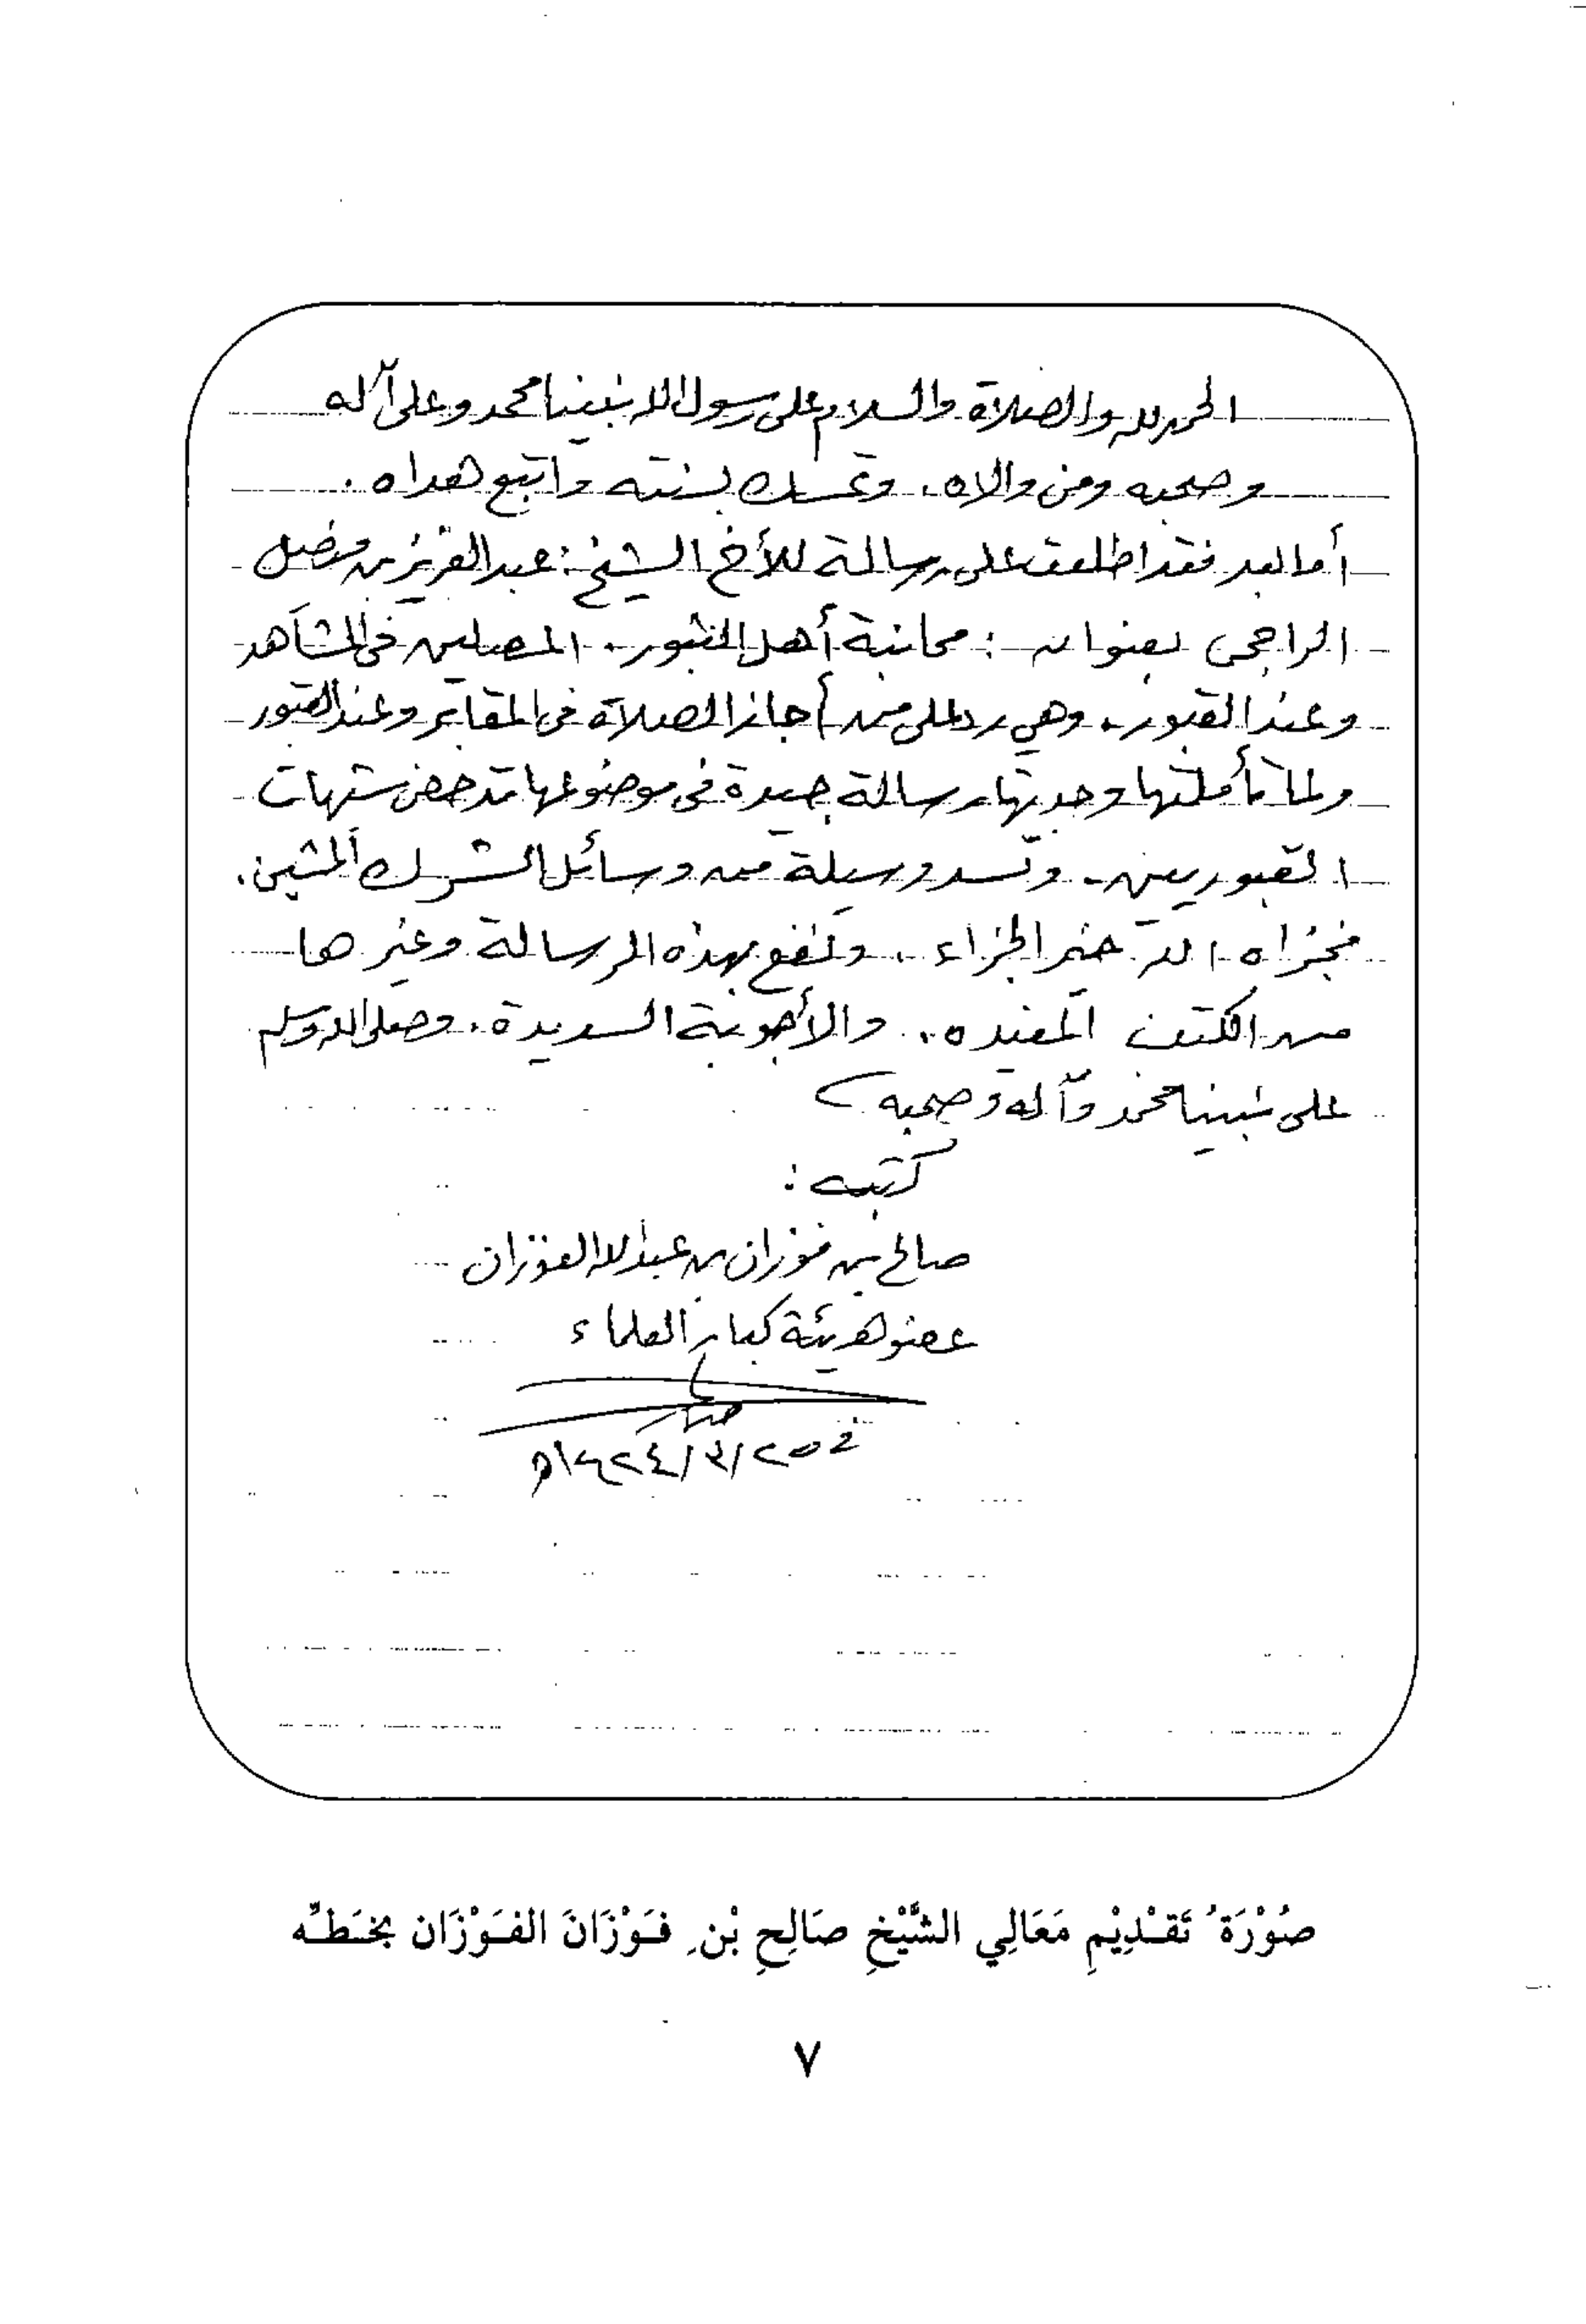 الحمد لله والصلاة والسلام على رسول الله نبينا محمد وعلى آله
وصحبه ومن والاه، وتمسك بسنته واتبع هداه.
أما بعد فقد اطلعت على رسالة للأخ الشيخ: عبد العزيز بن فيصل
الراجحي بعنوان: مجانبة أهل الثبور، المصلين في المشاهد
وعند القبور، وهي رد على من أجاز الصلاة في المقابر وعند القبور
ولما تأملتها وجدتها رسالة جيدة في موضوعها تدحض شبهات
القبوريين، وتسد وسيلة من وسائل الشرك المشين.
فجزاه الله خير الجزاء، ونفع بهذه الرسالة وغيرها
من الكتب المفيده، والأجوبة السديدة، وصلى الله وسلم
على نبينا محمد وآله وصحبه
كتبه:
صالح بن فوزان بن عبد الله الفوزان
عضو هيئة كبار العلماء
في ٢٥/٣/١٤٢٤هـ
صُوْرَةُ تَقْدِيْمِ مَعَالِي الشَّيْخِ صَالِحِ بْنِ فَوْزَانَ الفَوْزَان بِخَطِّه
٧